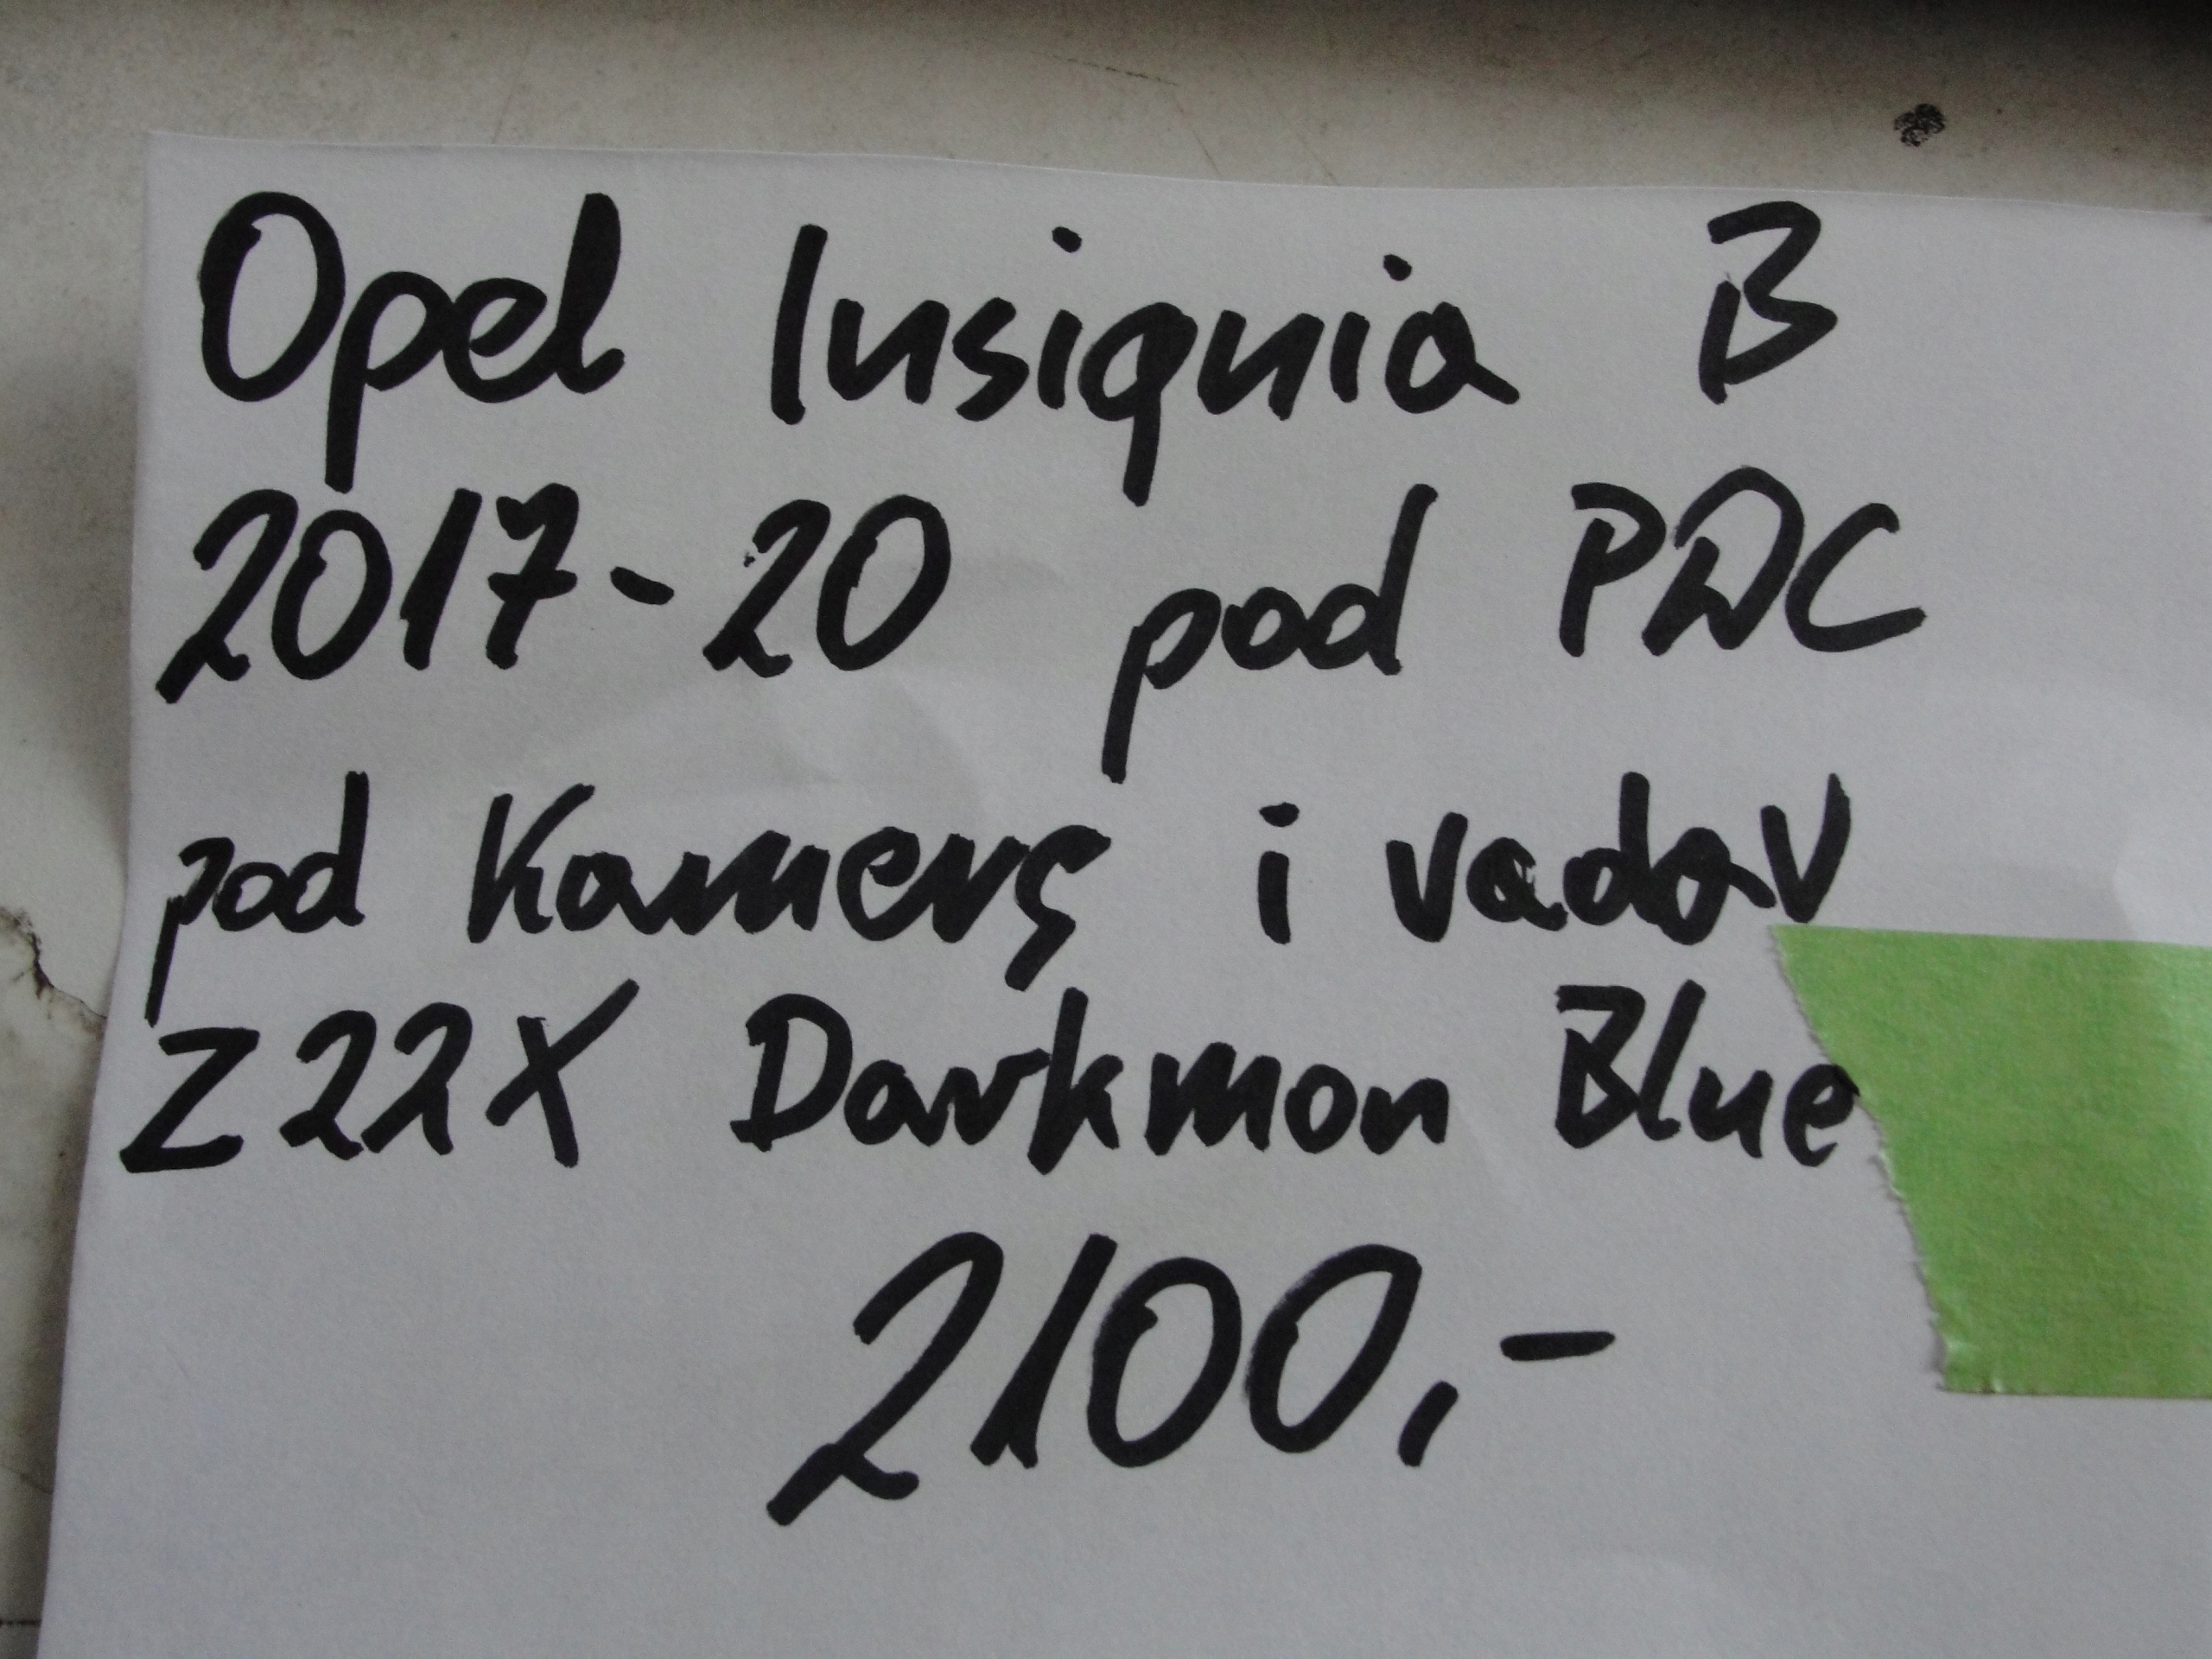 Opel Insignia B
2017-20 pod PDC
pod Kamerę i radar
Z22X Darkmon Blue
2100,-